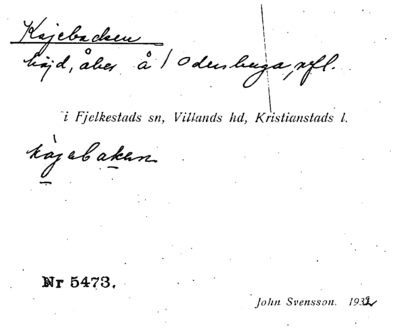 Kojebacken
höjd, åker å 1 Odersberga, nfl.
i Fjelkestads sn, Villands hd, Kristianstads l.
kåjebakan
Nr 5473.
John Svensson. 1932